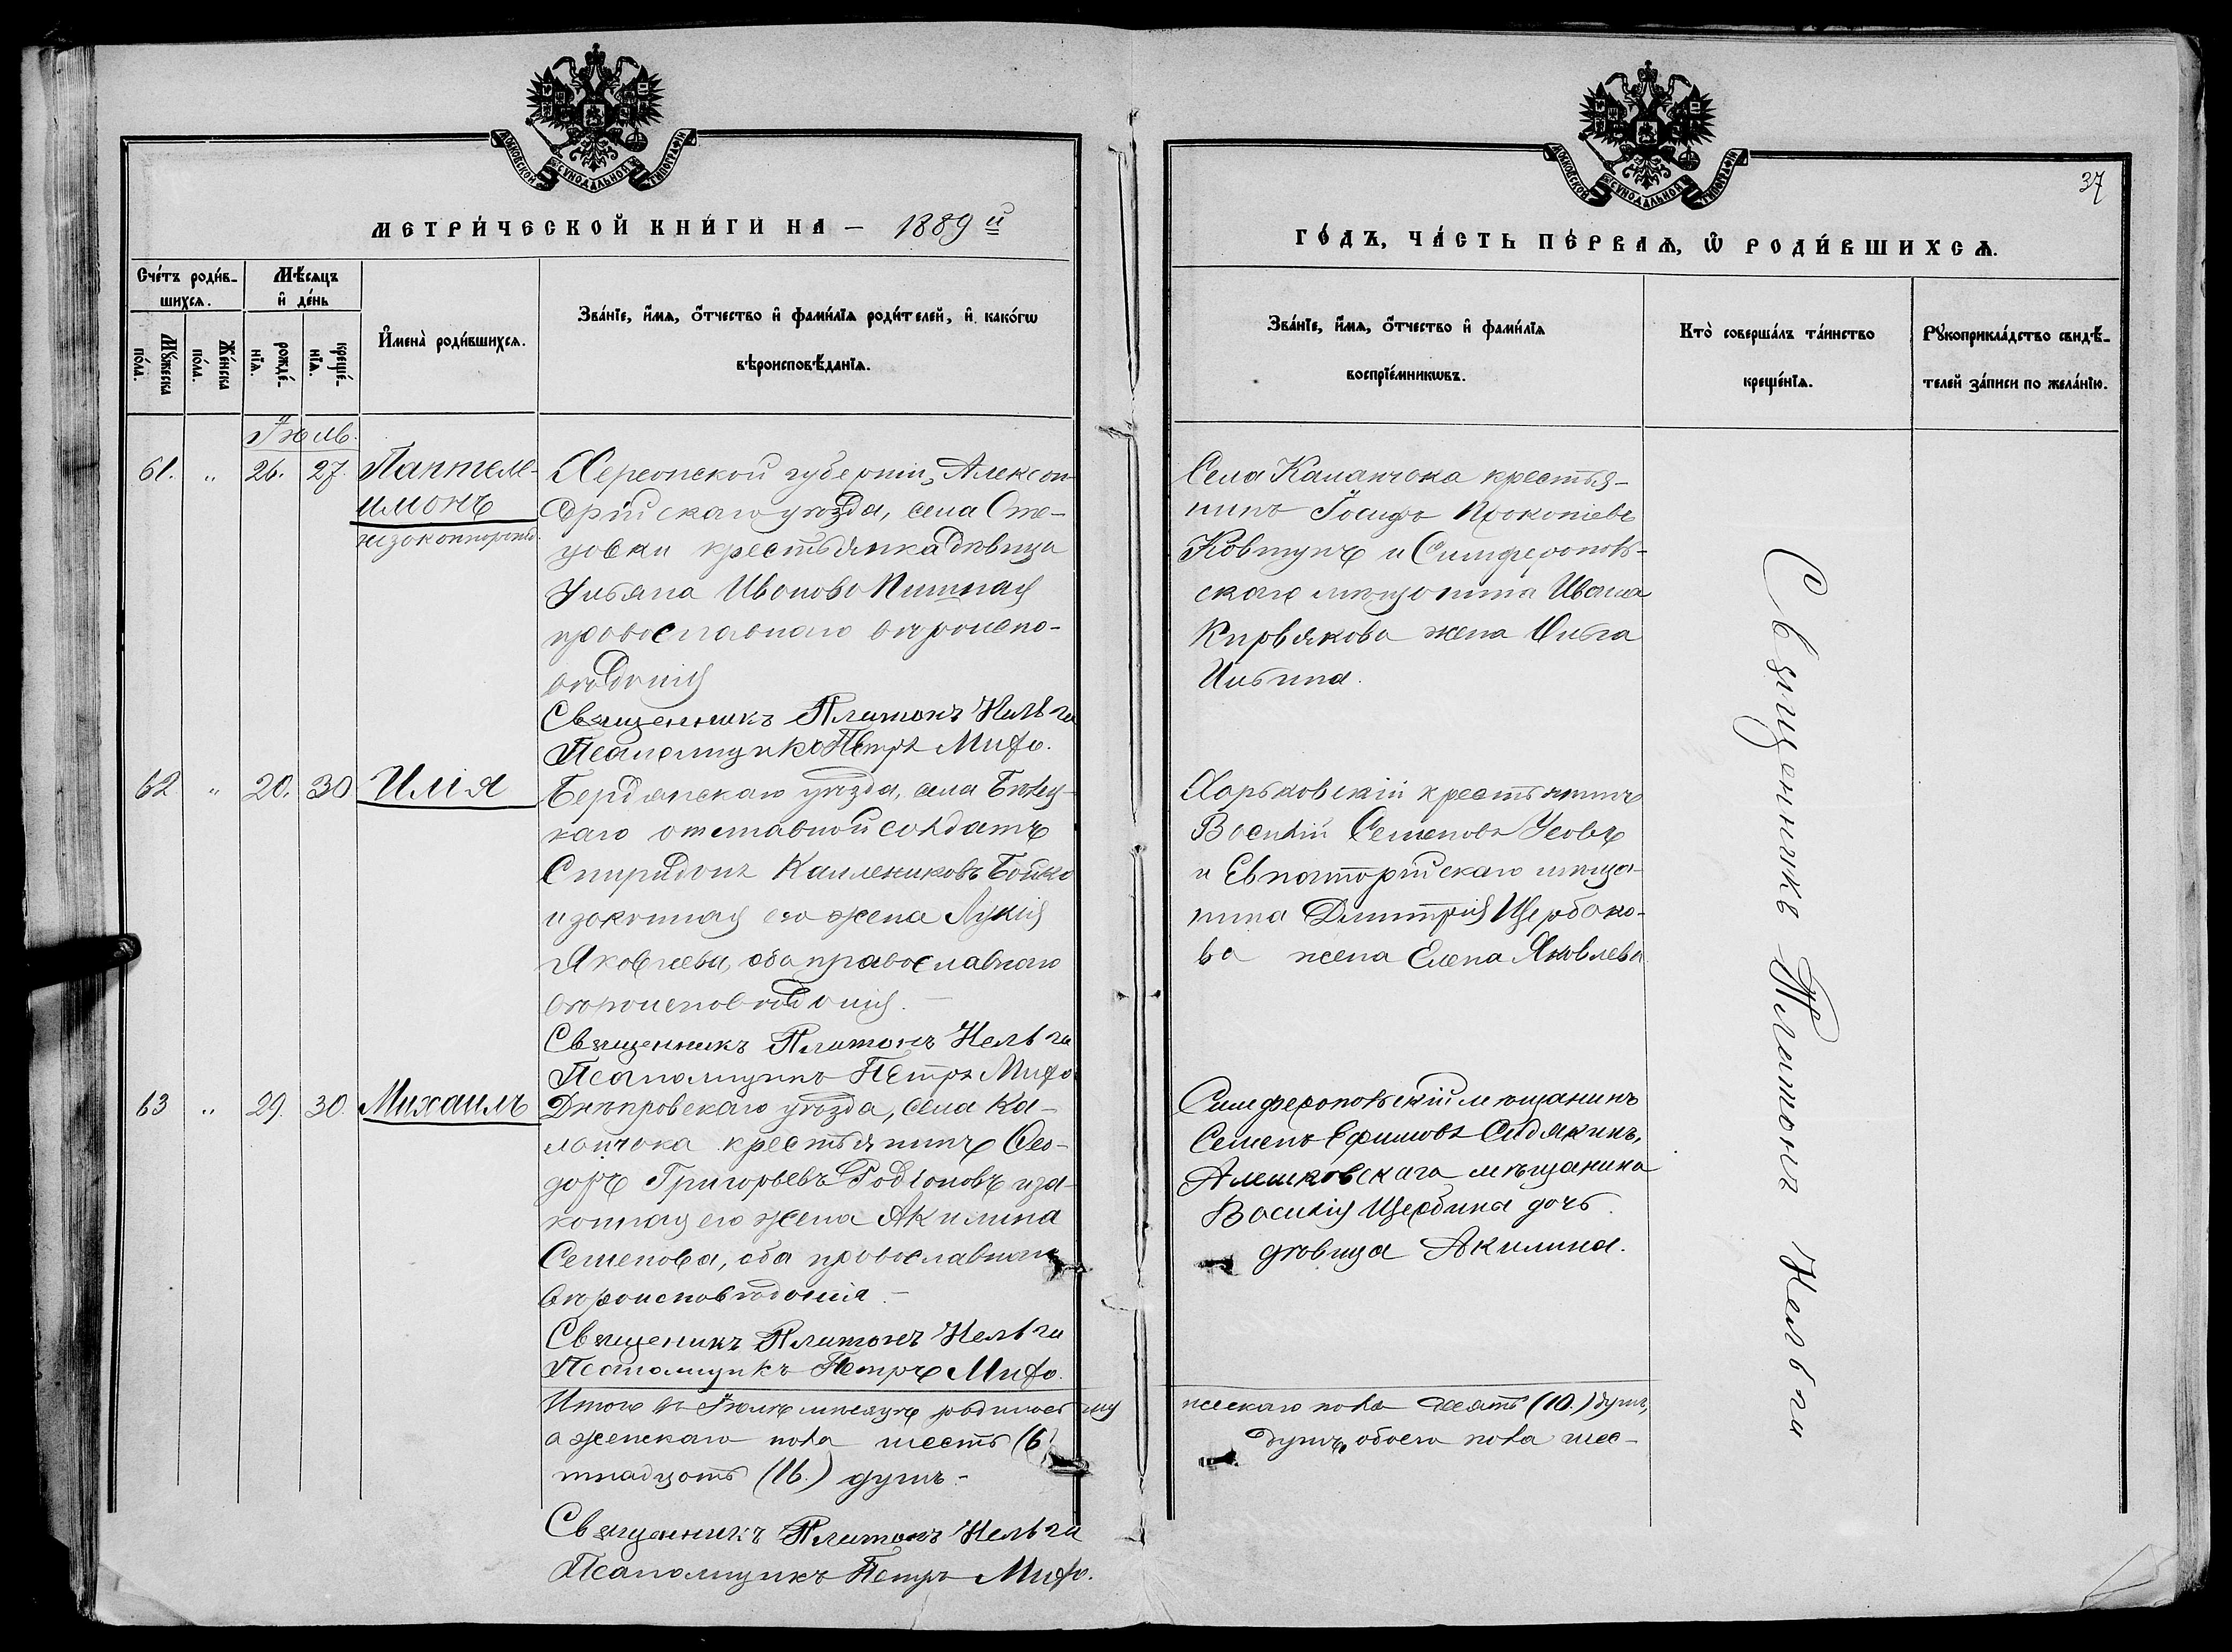 МОСКОВСКОЙ СѴНОДАЛЬНОЙ ТИПОГРАФІИ
МЕТРИ́ЧЕСКОЙ КНИ́ГИ НА – 1889 й
Сче́тъ роди́в-
шихсѧ.
Мѣ́сѧцъ
и҆ де́нь
Мꙋ́жеска
по́ла.
Же́нска
по́ла.
рожде́-
нїѧ.
креще́-
нїѧ.
И҆мена̀ роди́вшихсѧ.
Зва́нїе, и҆́мѧ, ѻ҆́тчество и҆ фамі́лїѧ роди́телей, и҆ како́гѡ
вѣроисповѣ́данїѧ.
Іюль.
61. " 26. 27. Пантеле-
имонъ
незаконнорожд.
Херсонской губерніи, Александ-
рійскаго уѣзда, села Сте-
цовки крестьянка дѣвица
Ульяна Иванова
православнаго вѣроиспо-
вѣданія
Священникъ Платонъ Нельга
Псаломщикъ Петръ Мифо.
62 " 20. 30 Илія
Бердянскаго уѣзда, села
каго отставной солдатъ
Спиридонъ Каллениковъ Бойко
и законная его жена Лукія
Яковлева, оба православнаго
вѣроисповѣданія. –
Священникъ Платонъ Нельга
Псаломщикъ Петръ Мифо
63 " 29. 30. Михаилъ
Днѣпровскаго уѣзда, села Ка-
ланчока крестьянинъ Ѳео-
доръ Григорьевъ Родіоновъ и за-
конная его жена Акилина
Семенова, оба православнаго
вѣроисповѣданія. –
Священикъ Платонъ Нельга
Псаломщикъ Петръ Мифо.
Итого въ Іюлѣ мѣсяцѣ родилось му
а женскаго пола шесть (6)
тнадцать (16.) душъ. –
Священникъ Платонъ Нельга
Псаломщикъ Петръ Мифо.
МОСКОВСКОЙ СѴНОДАЛЬНОЙ ТИПОГРАФІИ
37
ГО́ДЪ, ЧА́СТЬ ПЕ́РВАѦ, Ѡ҆ РОДИ́ВШИХСѦ.
Зва́нїе, и҆́мѧ, ѻ҆́тчество и҆ фамі́лїѧ
воспрїе́мникѡвъ.
Кто̀ соверша́лъ та́инство
креще́нїѧ.
Рꙋкоприкла́дство свидѣ́-
телей за́писи по жела́нїю.
Села Каланчока крестья-
нинъ Іосифъ Прокопіевъ
Ковтунъ и Симферополь-
скаго мѣщанина Ивана
Кирвякова жена Ольга
Ильина.
Харьковскій крестьянинъ
Василій Семеновъ Усовъ
и Евпаторійскаго мѣща-
нина Дмитрія Щербако-
ва жена Елена Яковлева
Симферопольскій мѣщанинъ
Семенъ Ефимовъ Сидякинъ,
Алешковскага мѣщанина
Василія Щербины дочь
дѣвица Акилина.
жескаго пола десять (10.) душъ,
душъ, обоего пола шес-
Священникъ Платонъ Нельга